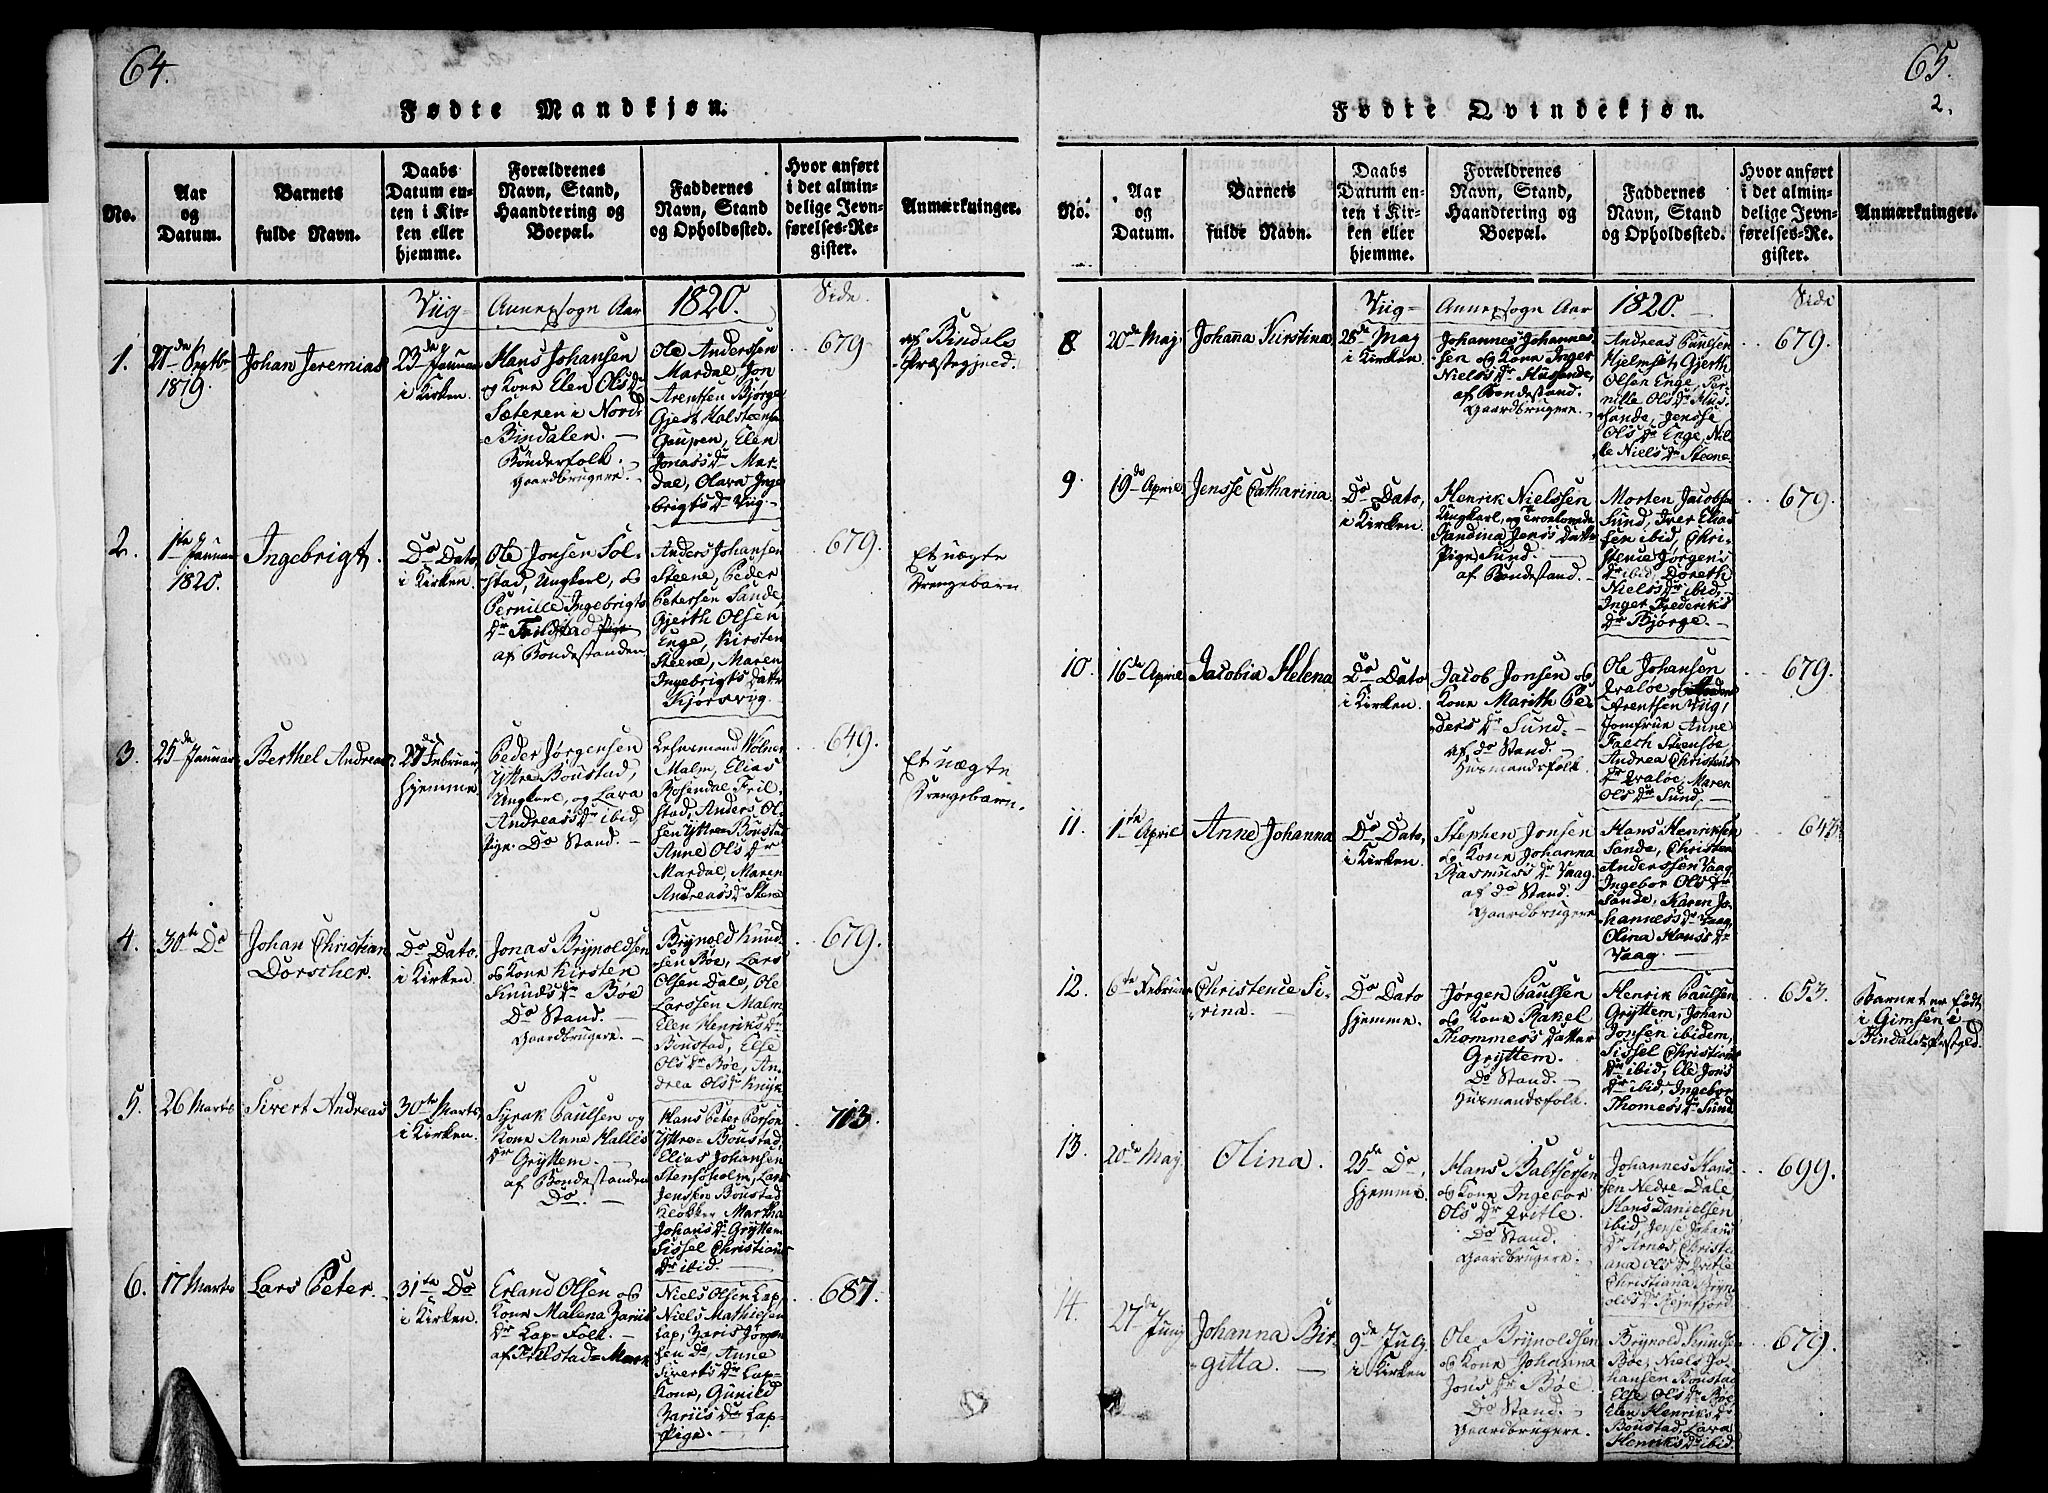 64.
Fødte Mandkjøn.
No.
Aar
og
Datum.
Barnets
fulde Navn.
Daabs
Datum en-
ten i Kir-
ken eller
hjemme.
Forældrenes
Navn, Stand,
Haandtering og
Boepæl.
Faddernes
Navn, Stand
og Opholdssted.
Hvor anført
i det almin-
delige Jevn-
førelses-Re-
gister.
Anmærkninger.
Viig-
Annexsogn Aar
1820.
Side.
1.
21de Septbr
1819.
Johan Jeremias
23de Januar
i Kirken.
Hans Johansen
og Kone Elen Ols Dr
Sæteren i Nord-
Bindalen. —
Bønderfolk.
Gaardbrugere. —
Ole Anderssen
Mardal, Jon
Arentsen Bjørge
Gjert Halstensen
Gaupen, Elen
Jonas's Dr Mar-
dal, Olava Inge
brigts Dr Viig —
679.
af Bindals
Præstegjeld.
2.
1te Januar
1820.
Ingebrigt.
Do Dato,
i Kirken.
Ole Jonsen Sol-
stad, Ungkarl, og
Pernille Ingebrigts
Dr
af Bondestanden.
Anders Johansen
Steene, Peder
Petersen Sande,
Gjerth Olsen
Enge, Kirsten
Steene, Maren
Ingebrigts Datter
Kjørsvig.
679.
Et uægte
Drengebarn
3.
25de Januar
Berthel Andreas
27de Februar,
hjemme.
Peder Jørgensen
Yttre Boustad,
Ungkarl, og Lava
Andreas's Dr ibid,
Pige. Do Stand. —
Malm, Elias
Rosendal Fril-
stad, Anders Ol-
sen Yttre Boustad
Anne Ols Dr
Mardal, Maren
Andreas's Dr Steene
649.
Et uægte
Drengebarn.
4.
30te Do
Johan Christian
Dorscher.
Do Dato.
i Kirken.
Jonas Brynoldsen
og Kone Kirsten
Knuds Dr Bøe
Do Stand. —
Gaardbrugere. —
Brynold Knud-
sen Bøe, Lars
Olsen Dale, Ole
Larssen Malm
Elen Henriks Dr
Boustad, Else
Ols Dr Bøe, An-
drea Ols Dr
679.
5.
26 Marts
Sivert Andreas
30te Marts,
i Kirken.
Syrak Paulsen og
Kone Anne Hallis
Dr Gryttem. —
af Bondestanden
Do. —
Hans Peter Person
Yttre Boustad,
Elias Johansen
Stensoholm, Lars
Jenssen Boustad
Klokker Martha
Johans Dr Gryttem
Sissel Christians
Dr ibid. —
703.
6.
17 Marts
Lars Peter.
31te Do
i Kirken.
Erland Olsen og
Kone Malena Zariis
Dr Lap-Folk. —
af Frilstad-Mark
Niels Olsen Lap
Niels Mathiesen
Lap, Zaris Jørgen
sen Do, Anne
Siverts Dr Lap-
Kone, Gunild
Zariis Dr Lap-
Pige. —
687.
65.
2.
Fødte Qvindekjøn.
No.
Aar
og
Datum.
Barnets
fulde Navn.
Daabs
Datum en-
ten i Kir-
ken eller
hjemme.
Forældrenes
Navn, Stand,
Haandtering og
Boepæl.
Faddernes
Navn, Stand
og Opholdssted.
Hvor anført
i det almin-
delige Jevn-
førelses-Re-
gister.
Anmærkninger.
Viig-
Annexsogn Aar
1820.
Side
8.
20de Maj
Johana Kirstina
28de May
i Kirken.
Johannes Johannes
sen og Kone Inger
Niels's Dr
af Bondestand.
Gaardbrugere. —
Andreas Paulsen
Hjelmset, Gjerth
Olsen Enge, Per-
nille Ols Dr
sande, Jensse
Ols Dr Enge, Nil-
le Niels Dr Steene
679.
9.
19de April
Jensse Catharina.
Do Dato,
i Kirken.
Henrik Nielssen
Ungkarl, og Trolovede
Randina Jens's Datter
Pige Sund. —
af Bondestand. —
Morten Jacobsen
Sund, Iver Elias
sen ibid, Chri-
stence Jørgen's
Dr ibid, Doreth
Niels Dr ibid,
Inger Frederik's
Dr Bjørge. —
679.
10.
16de April
Jacobia Helena
Do Dato
i Kirken.
Jacob Jonsen og
Kone Marith Pe-
ders Dr Sund. —
af do Stand. —
Huusmandsfolk.
Ole Johansen
Qvaløe
Arentsen Viig,
Jomfrue Anne
Falch Steensøe,
Andrea Christens
Dr Qvaløe, Maren
Ols Dr Sund. —
679.
11.
1te April
Anne Johanna
Do Dato,
i Kirken.
Stephen Jonsen
og Kone Johanna
Rasmus's Dr Vaag.
af do Stand. —
Gaardbrugere
Hans Henriksen
Sande, Christen
Anderssen Vaag,
Ingebor Ols Dr
Sande, Karen Jo-
hannes's Dr Vaag,
Olina Hans's Dr
Vaag. —
12.
6te Februar
Christence Si-
rina.
Do Dato
hjemme.
Jørgen Paulsen
og Kone Rakel
Thommes's Datter
Gryttem.
Do Stand. —
Huusmandsfolk.
Henrik Paulsen
Gryttem, Johan
Jonsen ibidem,
Sissel Christians
Dr ibid, Ele Jons
Dr ibid, Ingebor
Thomes's Dr Sund
653.
Barnet er født
i Gimsen i
Bindals Prstgjld.
13.
20de Maj.
Olina.
25de Do,
hjemme.
Hans Baltsersen
og Kone Ingebor
Ols Dr Qvitle.
Do Stand.
Gaardbrugere. —
Johannes Hans-
sen Nedre-Dale,
Hans Danielsen
ibid, Jense Johans
Dr Arnes, Christi-
ana Ols Dr Qvitle
Christiana Bryn-
olds Dr Reinfjord.
699.
14.
27de Juny
Johanna Bir-
gitta. —
9de July
i Kirken
Ole Brynoldsen
og Kone Johanna
Jons Dr Bøe.
Do Stand. —
Gaardbrugere.
Brynold Knudsen
Bøe, Niels Jo-
hansen Boustad
Else Ols Dr Bøe
Elen Henriks Dr
Boustad, Lava
Henriks Dr ibid.
679.